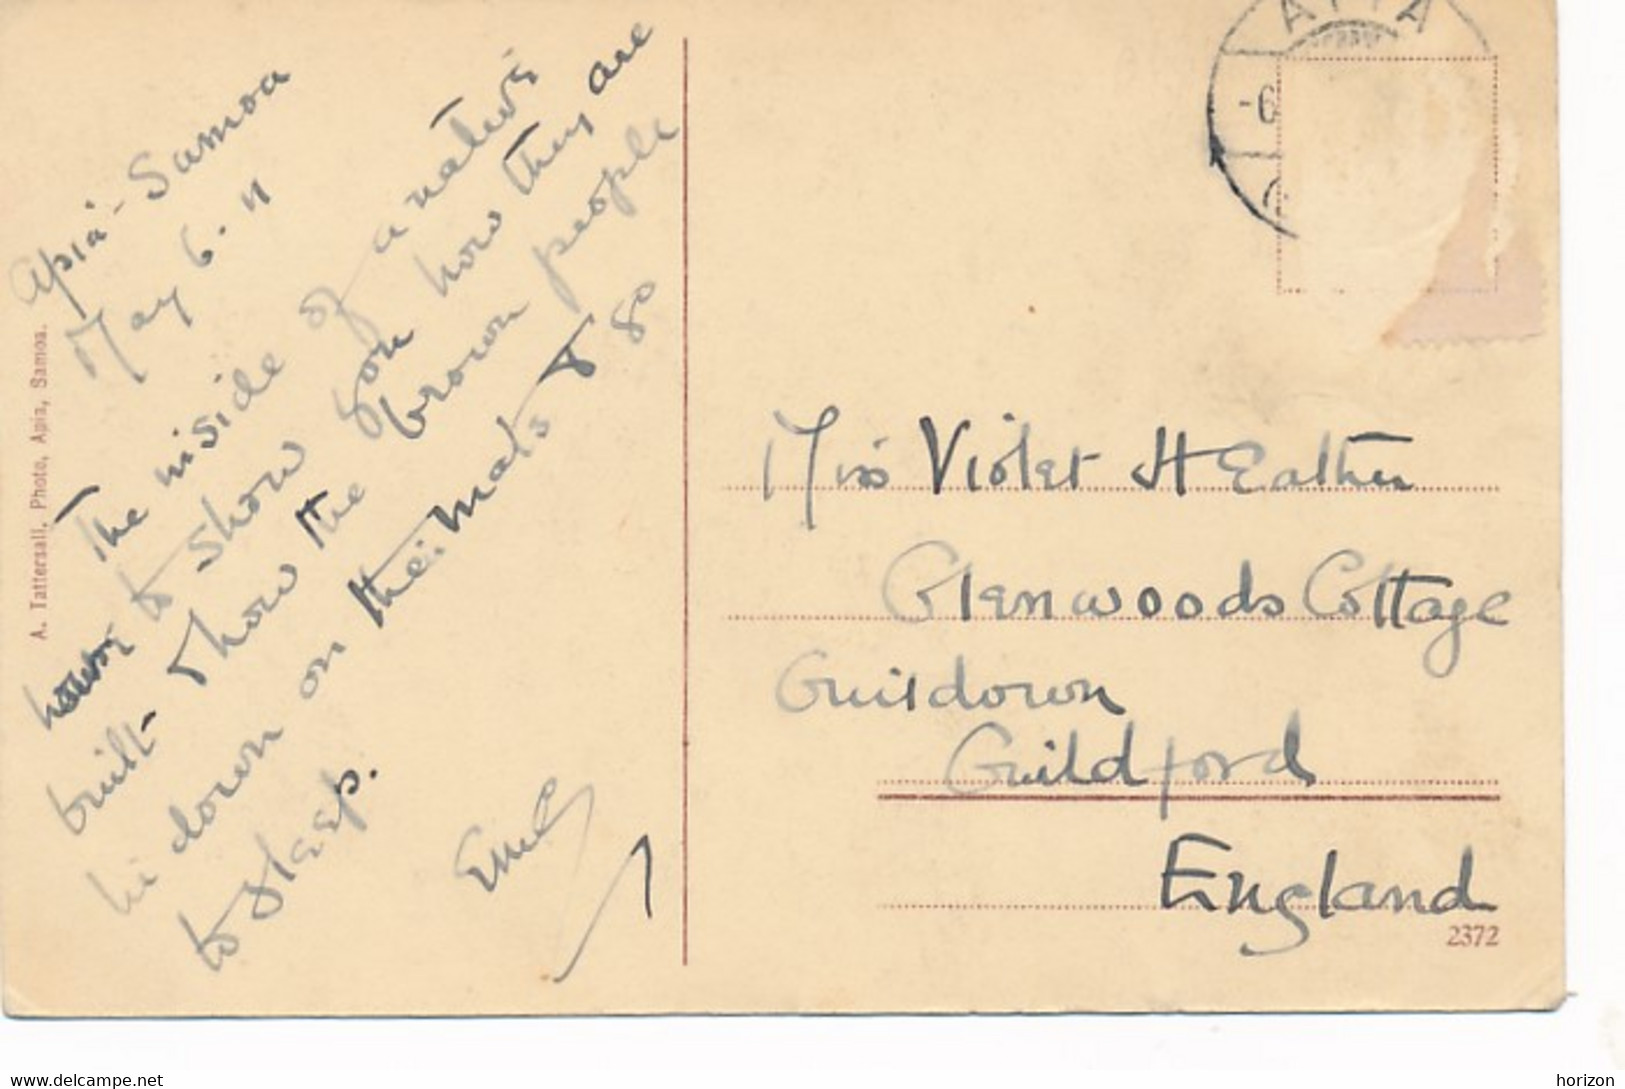 Apia - Samoa
May 6. 11
The inside of a native
house to show you how they are
built & how the brown people
lie down on their mats & go
to sleep.
A. Tattersall, Photo, Apia, Samoa.
APIA
-6
Miss Violet H Eather
Glenwoods Cottage
Guildown
Guildford
England
2372
www.delcampe.net
horizon